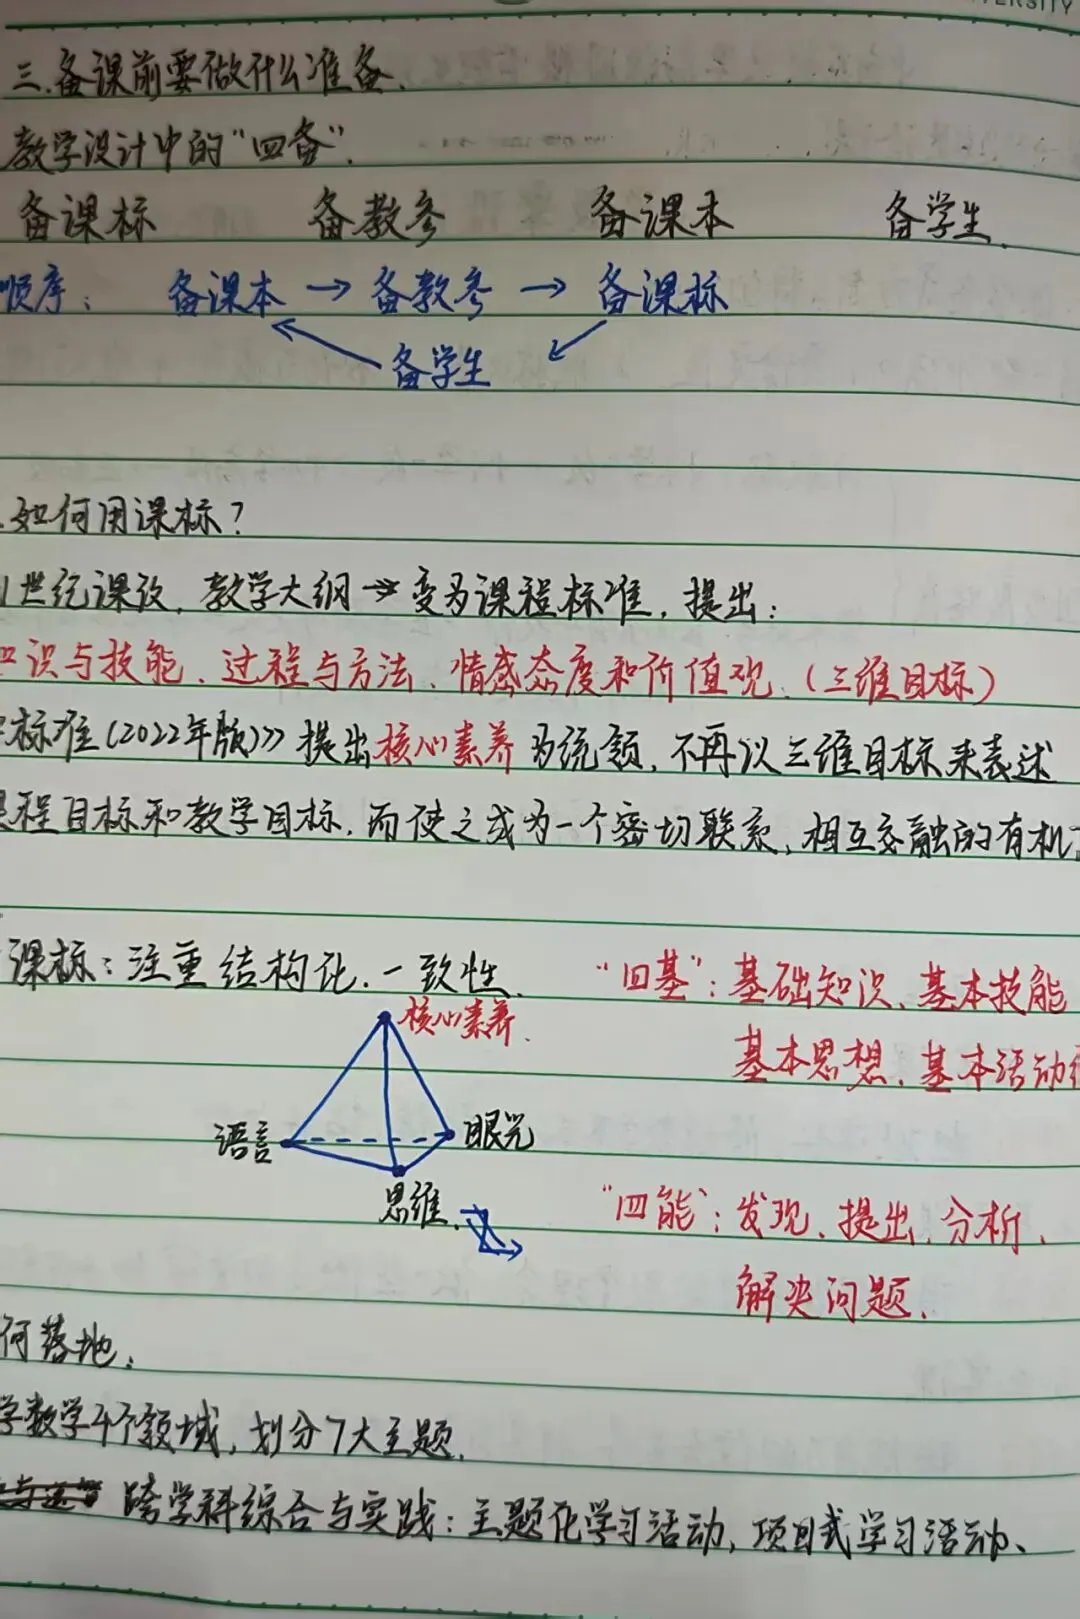 ERSITY
三.备课前要做什么准备.
教学设计中的“四备”.
备课标 备教参 备课本 备学生.
顺序: 备课本→备教参→备课标
备学生
.如何用课标?
世纪课改,教学大纲→变为课程标准,提出:
识与技能、过程与方法、情感态度和价值观.(三维目标)
标准(2022年版)》提出核心素养为统领,不再以三维目标来表述
程目标和教学目标,而使之成为一个密切联系,相互交融的有机
课标:注重结构化.一致性.
“四基”:基础知识、基本技能
基本思想、基本活动
核心素养.
语言
眼光
思维.
“四能”:发现、提出、分析、
解决问题.
何落地.
学数学4个领域,划分7大主题.
跨学科综合与实践:主题化学习活动,项目式学习活动、